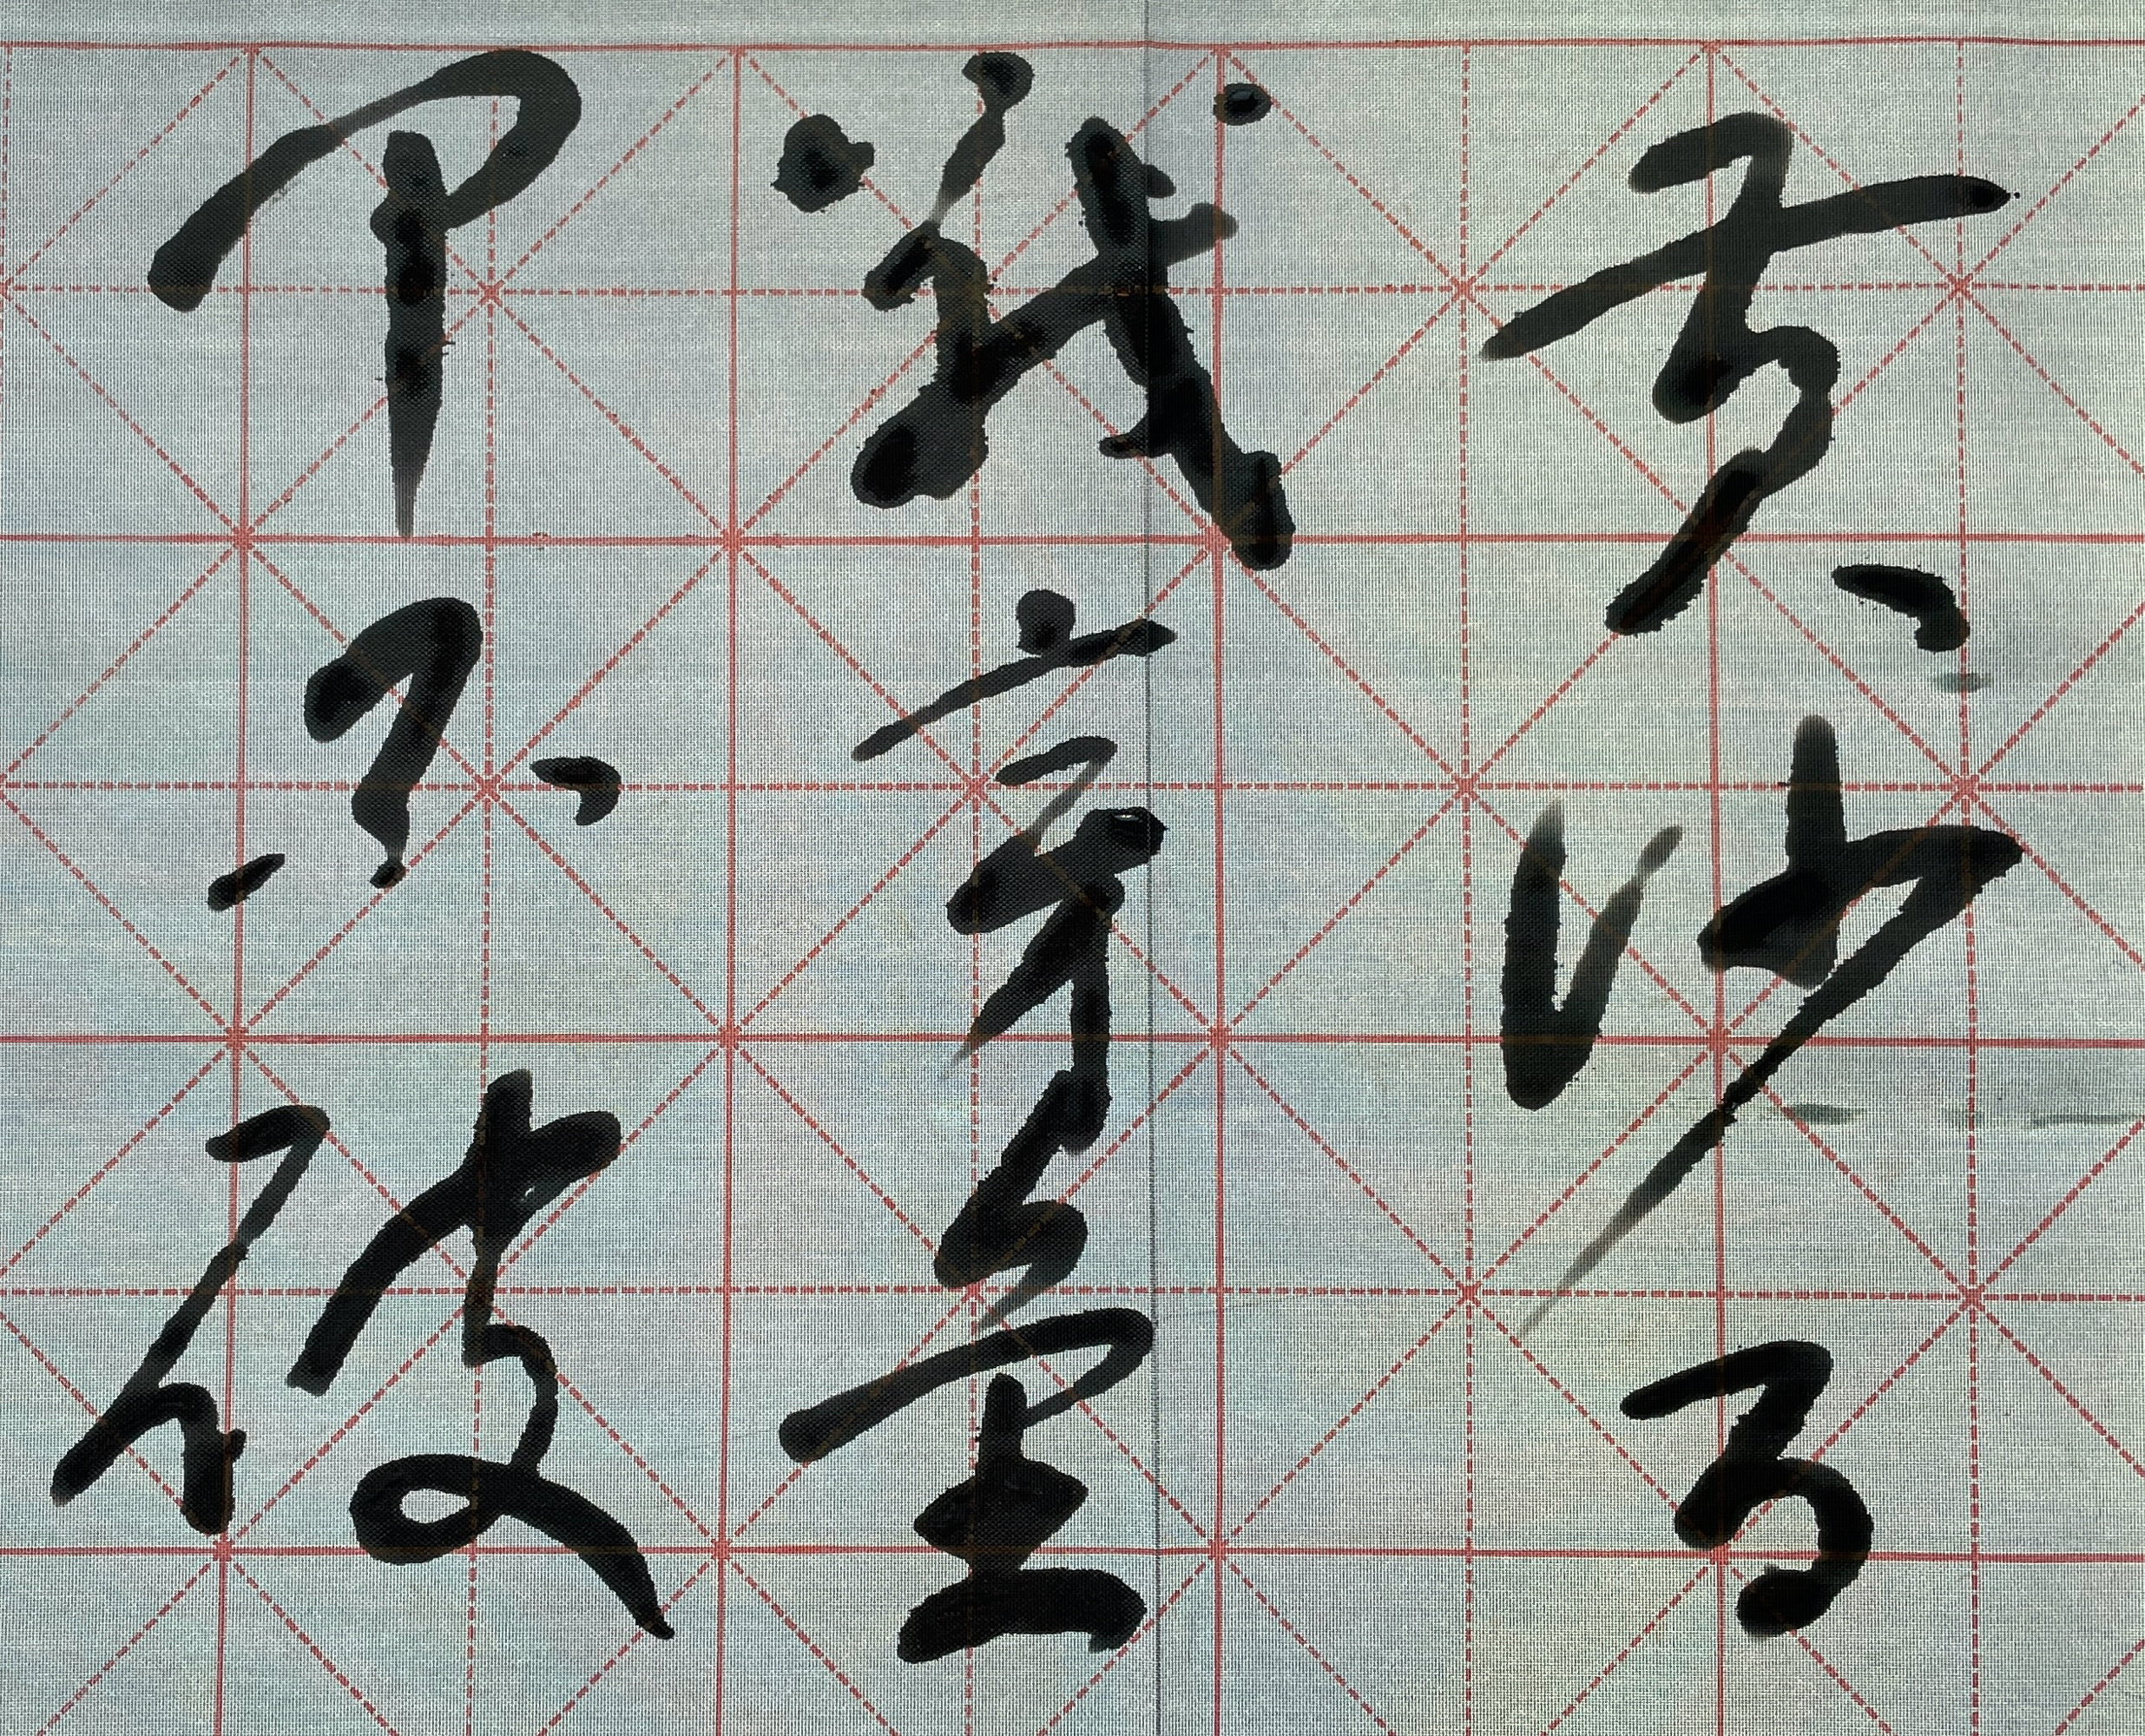 黄沙百
戰穿金
甲不破